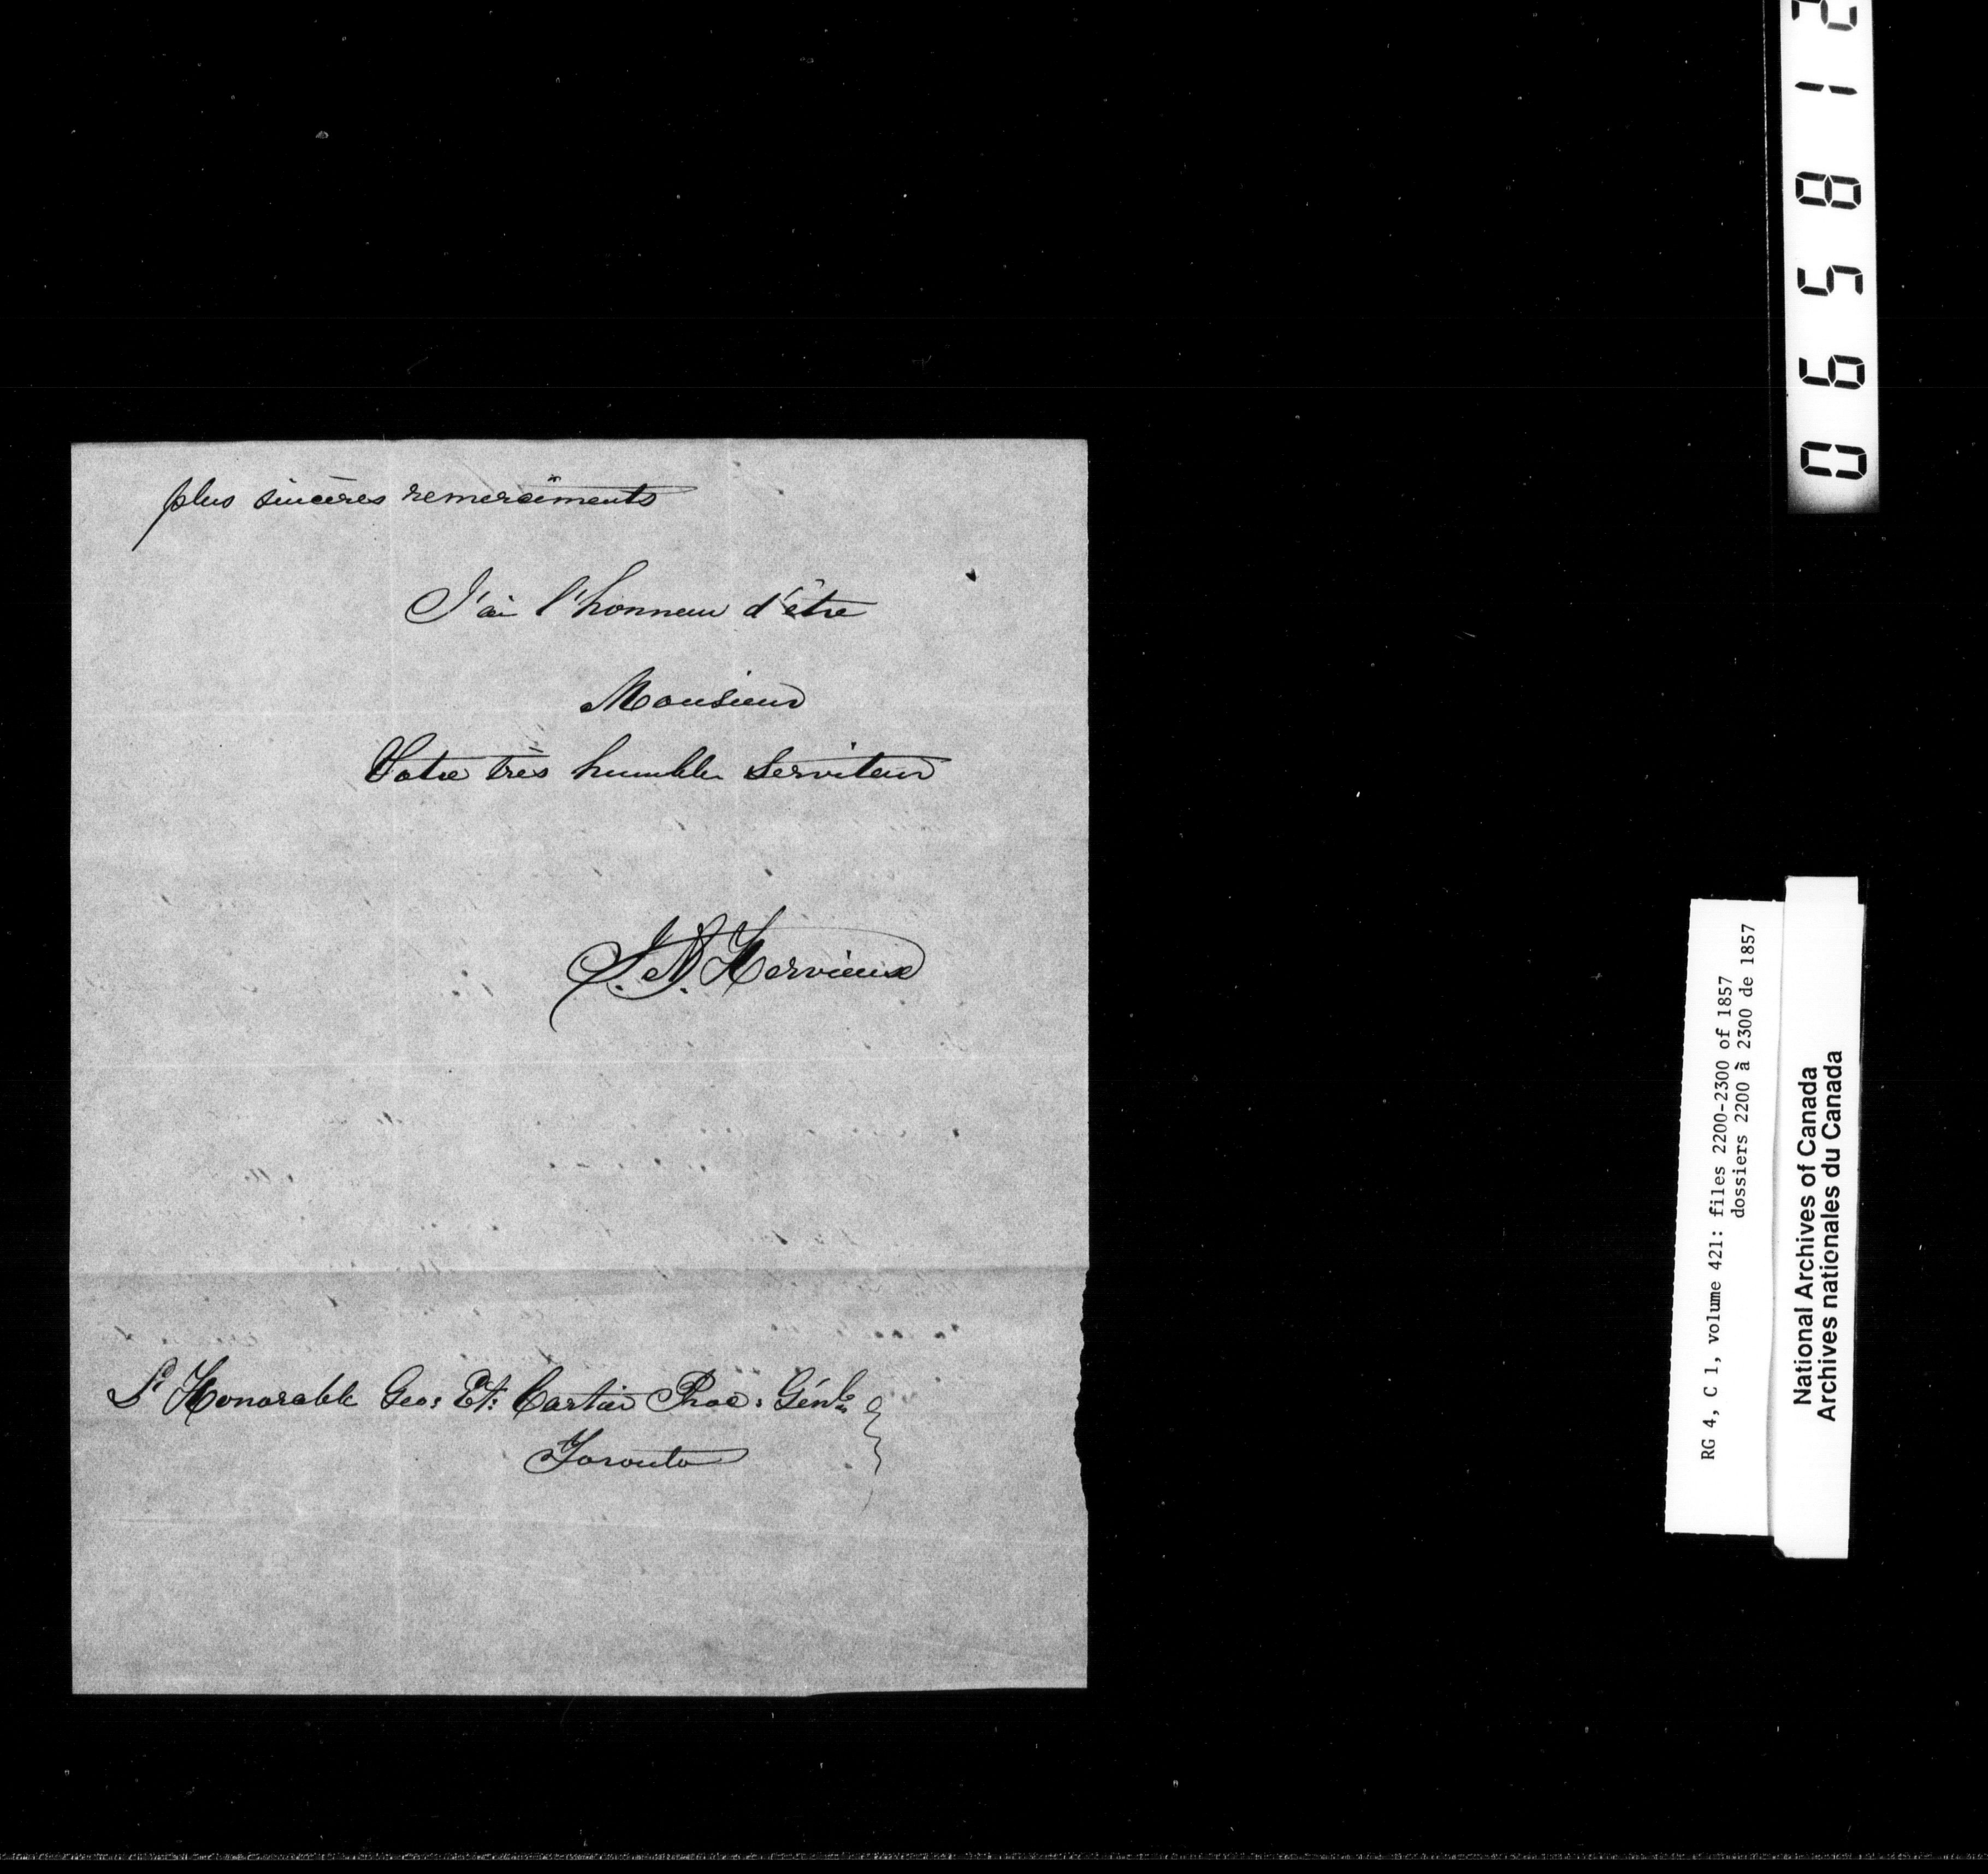 plus sincères remercîments
J'ai l'honneur d'être
Monsieur
Votre très humble Serviteur
J. N. Hervieux
L'Honorable Geo: Et: Cartier Proc: Génl.
Toronto
065812
RG 4, C 1, volume 421: files 2200-2300 of 1857
dossiers 2200 à 2300 de 1857
National Archives of Canada
Archives nationales du Canada